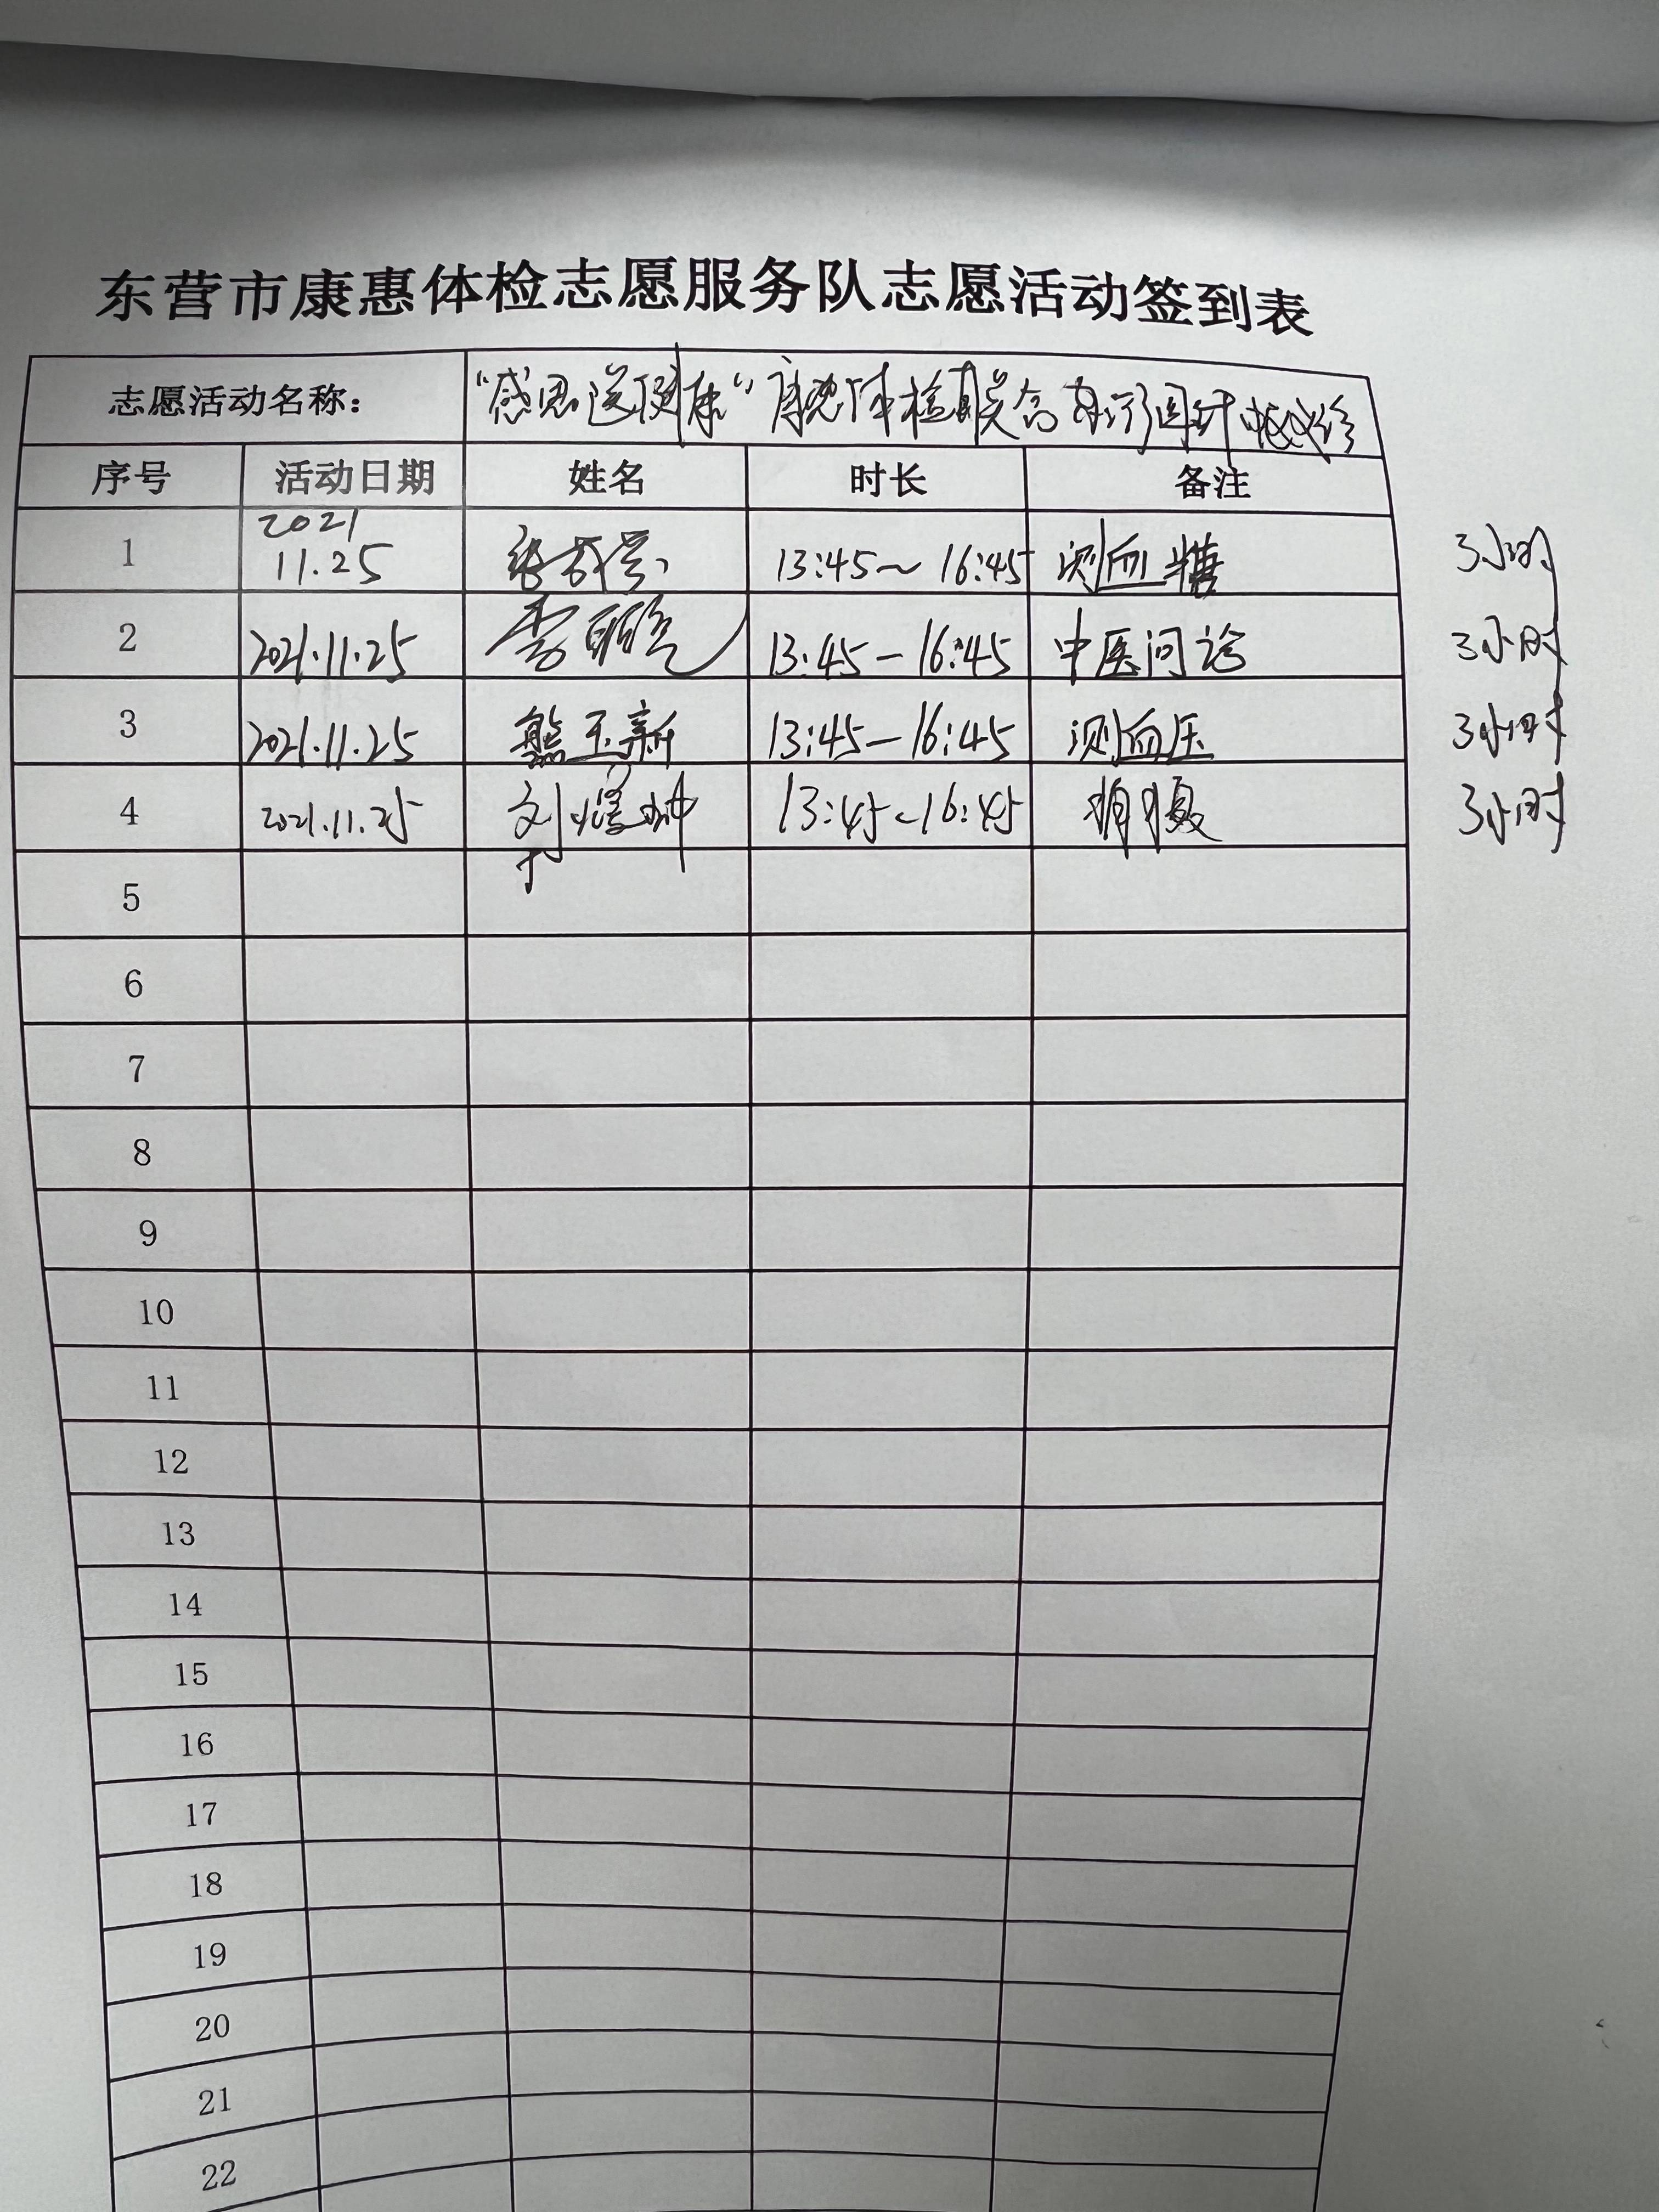 东营市康惠体检志愿服务队志愿活动签到表
志愿活动名称： “感恩送健康” 康惠体检联合
序号 活动日期 姓名 时长 备注
1 2021 11.25 13:45~16:45 测血糖 3小时
2 2021.11.25 李 13:45-16:45 中医问诊 3小时
3 2021.11.25 熊玉新 13:45-16:45 测血压 3小时
4 2021.11.25 刘 13:45-16:45 3小时
5
6
7
8
9
10
11
12
13
14
15
16
17
18
19
20
21
22